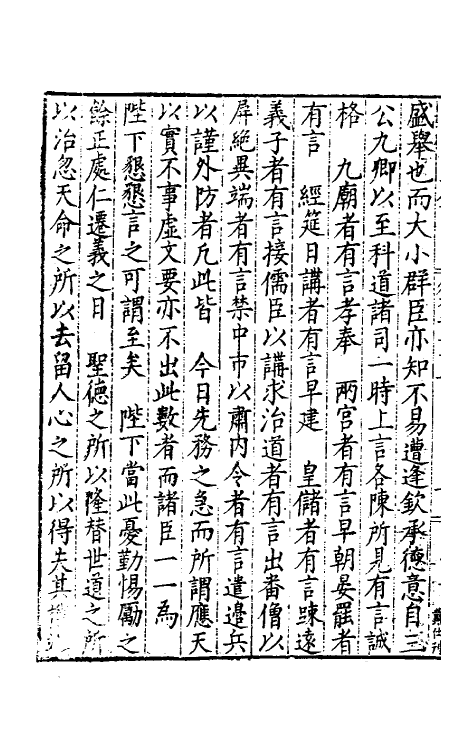 盛舉也而大小群臣亦知不易遭逢欽承德意自三
公九卿以至科道諸司一時上言各陳所見有言誠
格　九廟者有言孝奉　兩宮者有言早朝晏罷者
有言　經筵日講者有言早建　皇儲者有言踈遠
義子者有言接儒臣以講求治道者有言出畨僧以
屏絕異端者有言禁中市以肅內令者有言遣邉兵
以謹外防者凡此皆　今日先務之急而所謂應天
以實不事虛文要亦不出此數者而諸臣一一爲
陛下懇懇言之可謂至矣　陛下當此憂勤惕勵之
餘正處仁遷義之日　聖德之所以隆替世道之所
以治忽天命之所以去留人心之所以得失其